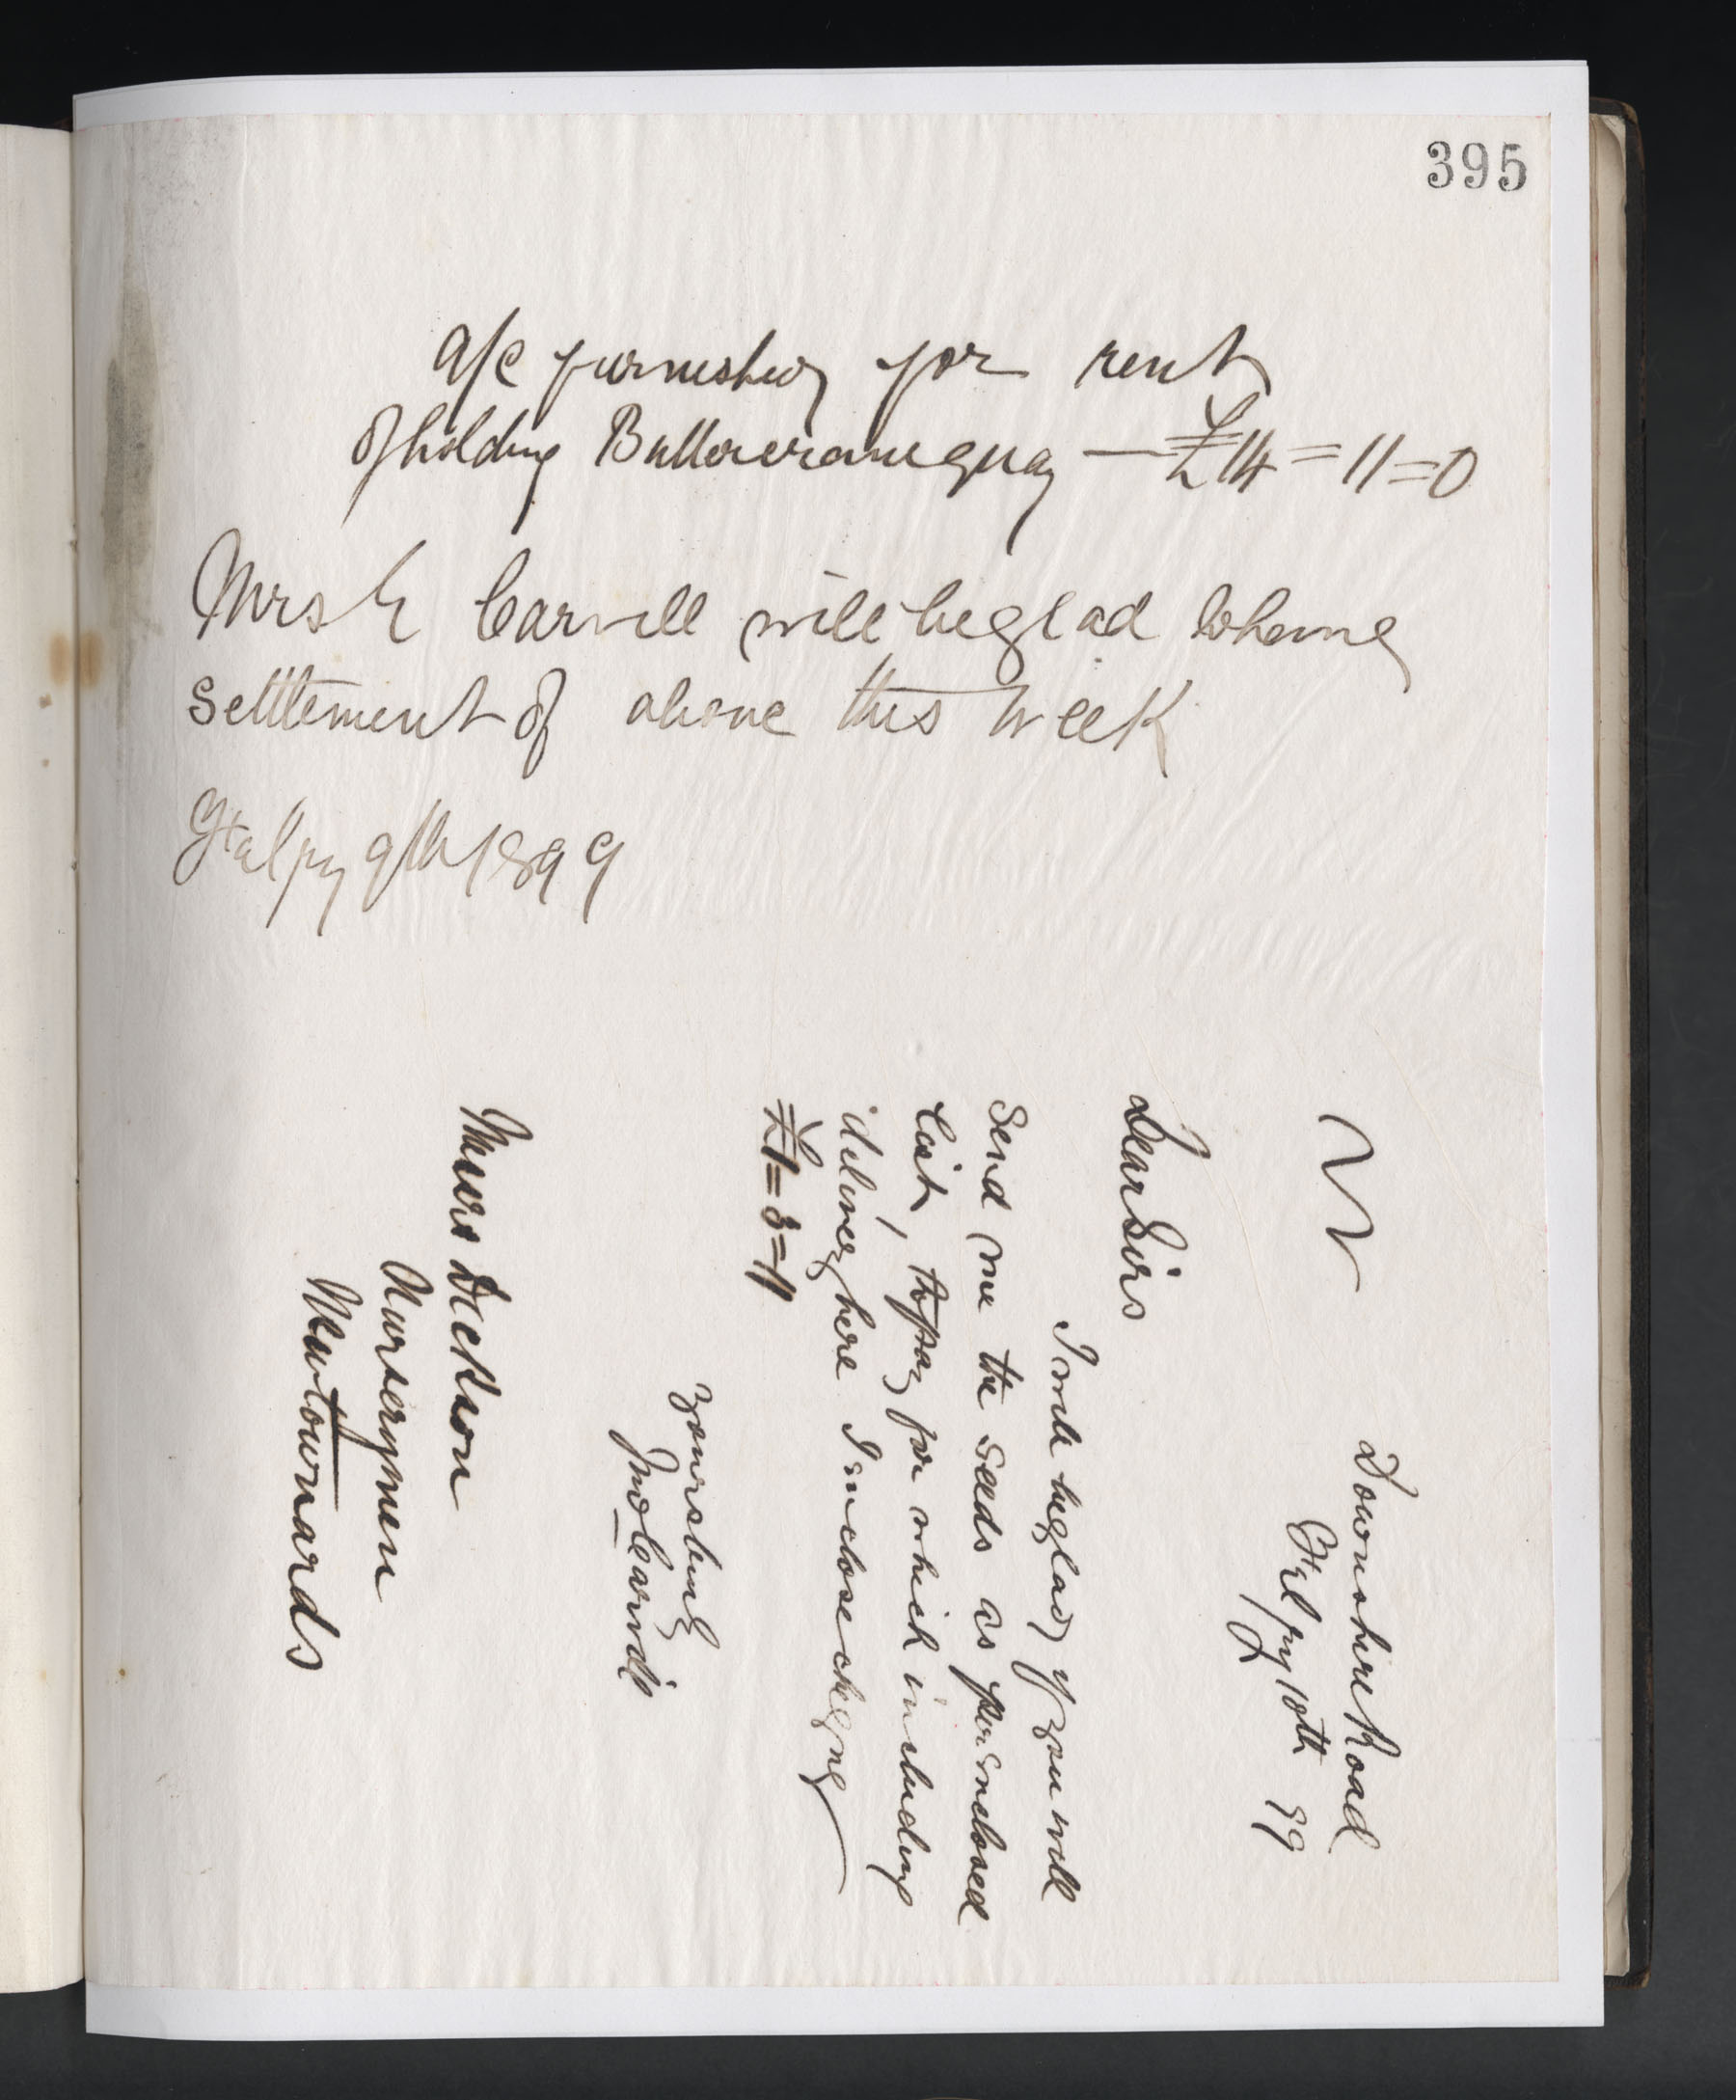 395
a/c furnished for rent
of holding Ballincraneguay — £14=11=0
Mrs E Carvill will be glad to have
settlement of above this week
9th 1899
Downshire Road
10th 99
Dear Sirs
I will be glad if you will
send me the seeds as per enclosed
list, to pay for which including
delivery here I enclose cheque
£1=3=11
Yours truly
Jno Carvill
Messrs Dickson
Nurserymen
Newtownards